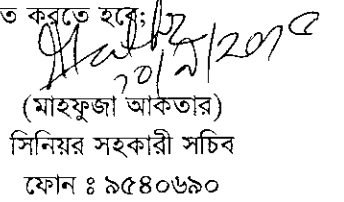 ত করতে হবে;
২০/৯/২০১৫
(মাহফুজা আকতার)
সিনিয়র সহকারী সচিব
ফোন ঃ ৯৫৪০৬৯০